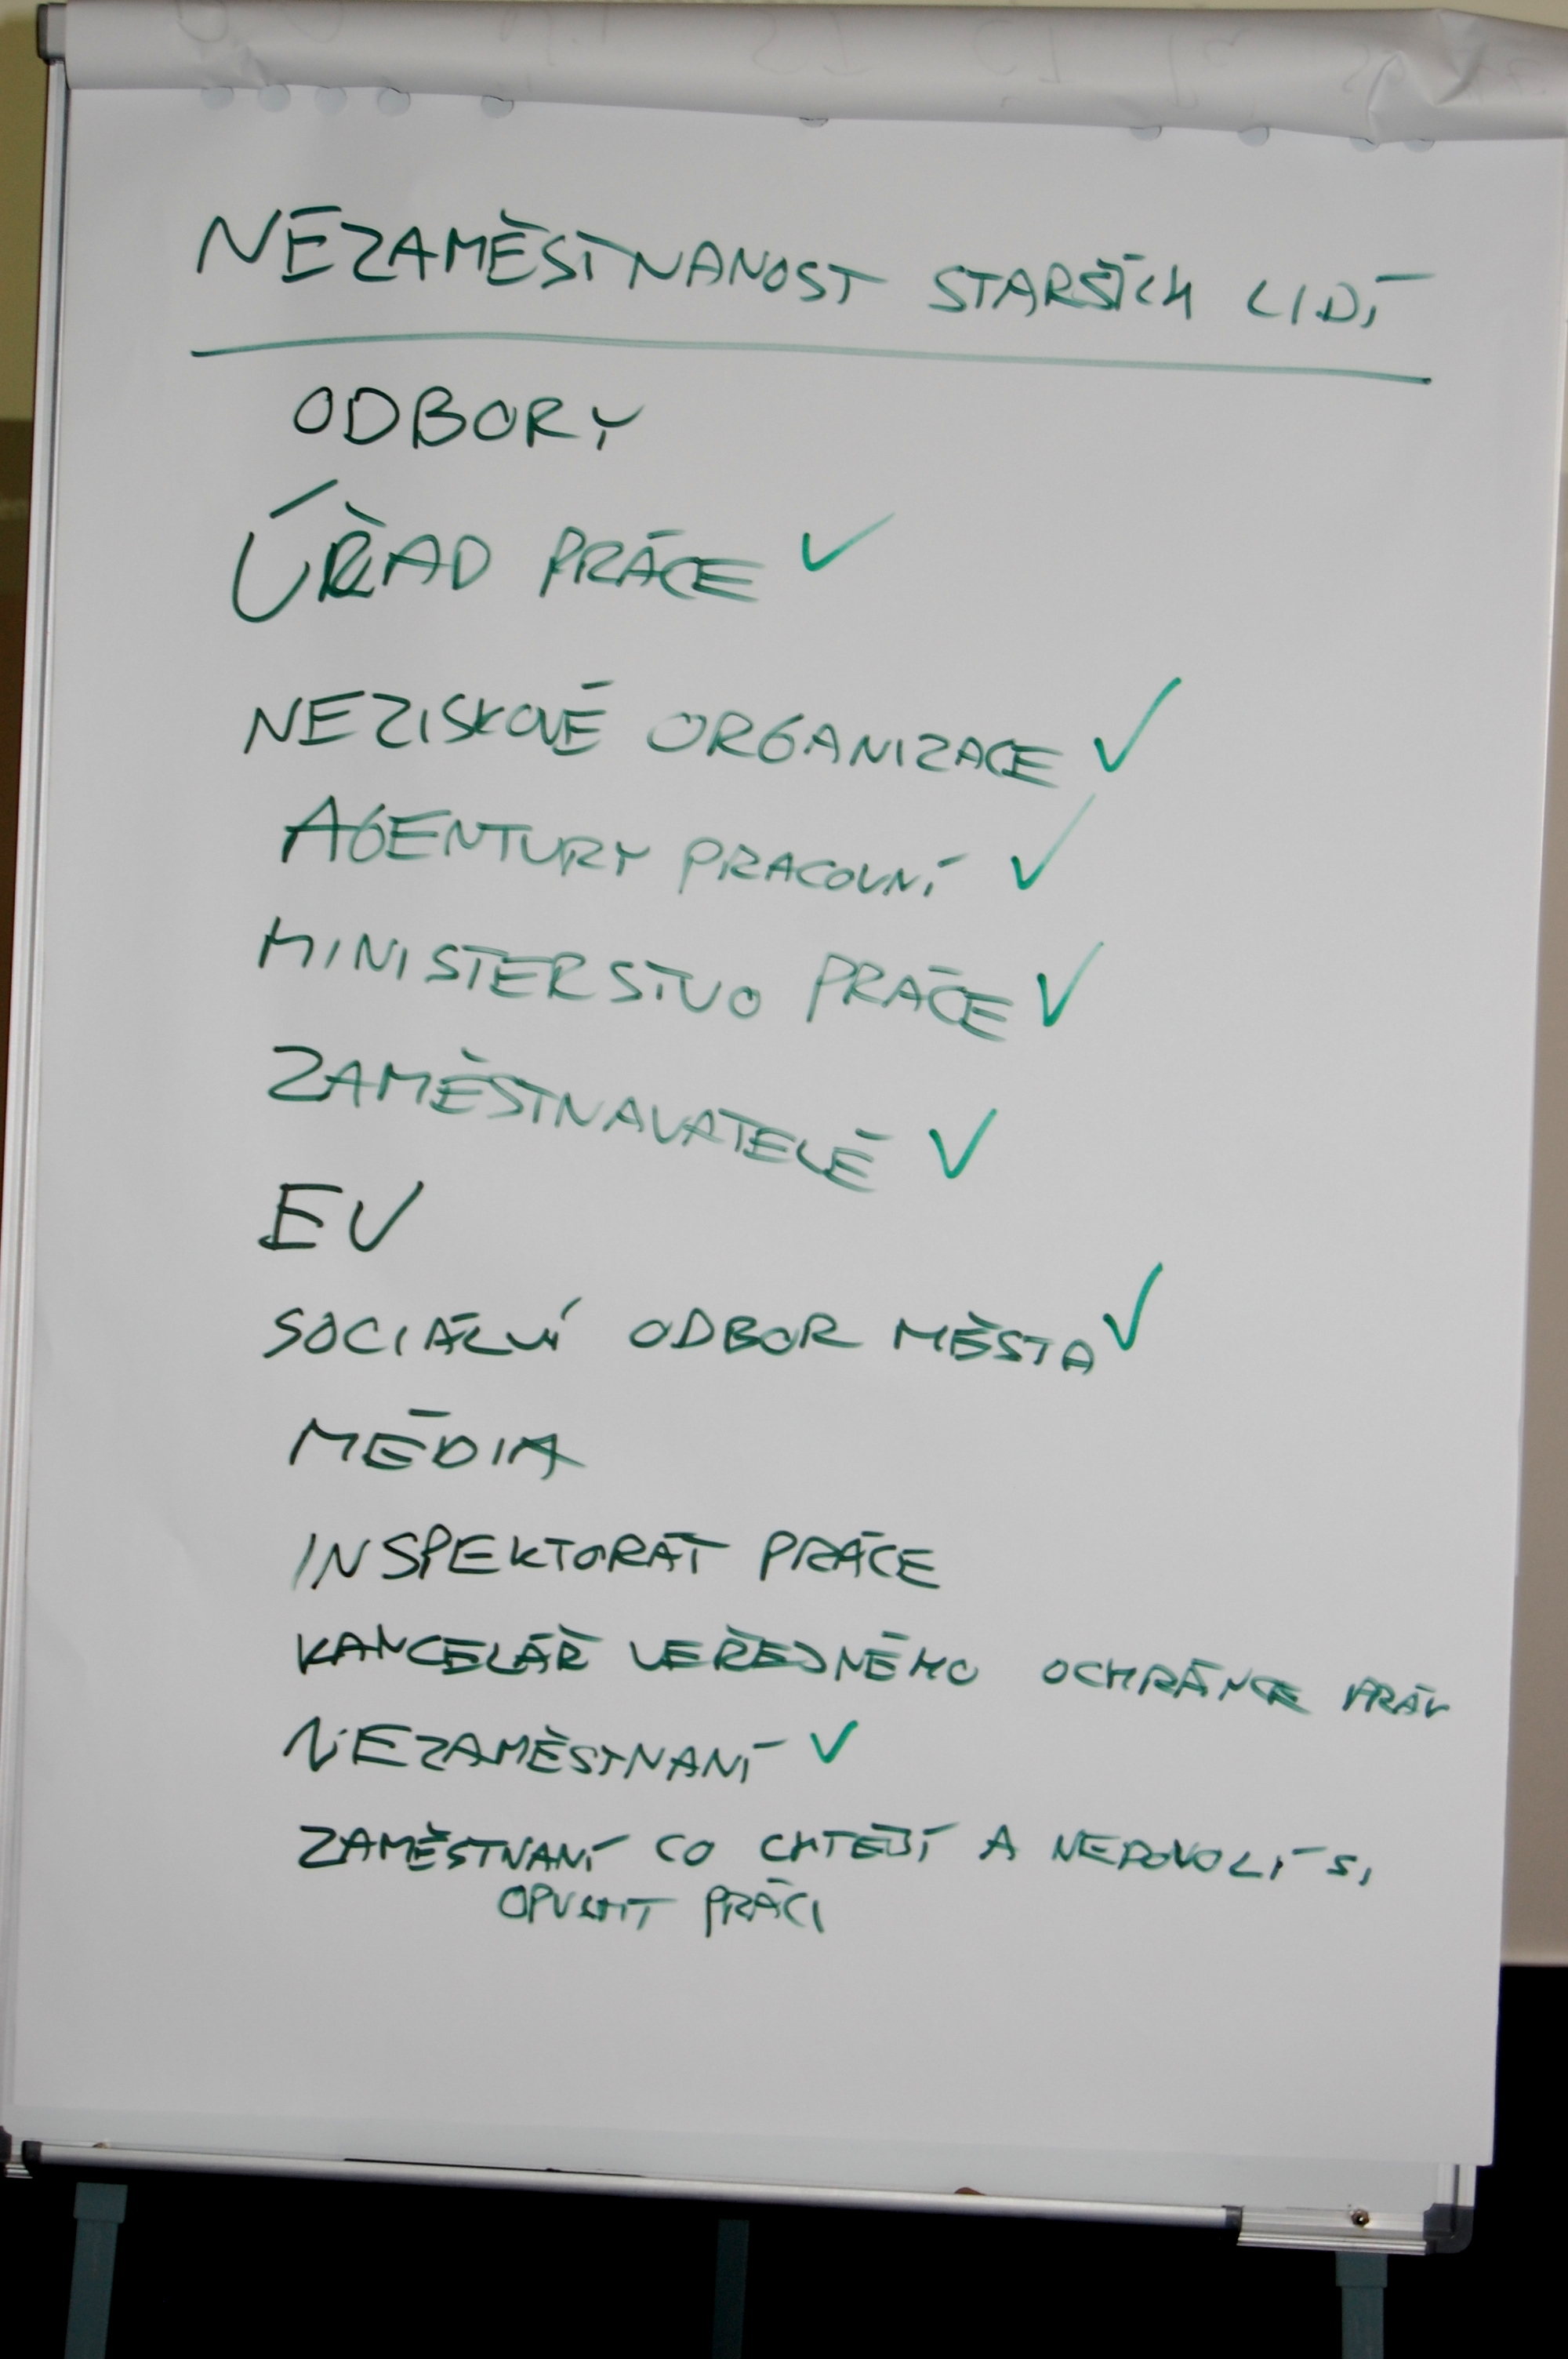 NEZAMĚSTNANOST STARŠÍCH LIDÍ
ODBORY
ÚŘAD PRÁCE ✓
NEZISKOVÉ ORGANIZACE ✓
AGENTURY PRACOVNÍ ✓
MINISTERSTVO PRÁCE ✓
ZAMĚSTNAVATELÉ ✓
EU
SOCIÁLNÍ ODBOR MĚSTA ✓
MÉDIA
INSPEKTORÁT PRÁCE
KANCELÁŘ VEŘEJNÉHO OCHRÁNCE PRÁV
NEZAMĚSTNANÍ ✓
ZAMĚSTNANÍ CO CHTĚJÍ A NEDOVOLÍ SI
OPUSTIT PRÁCI